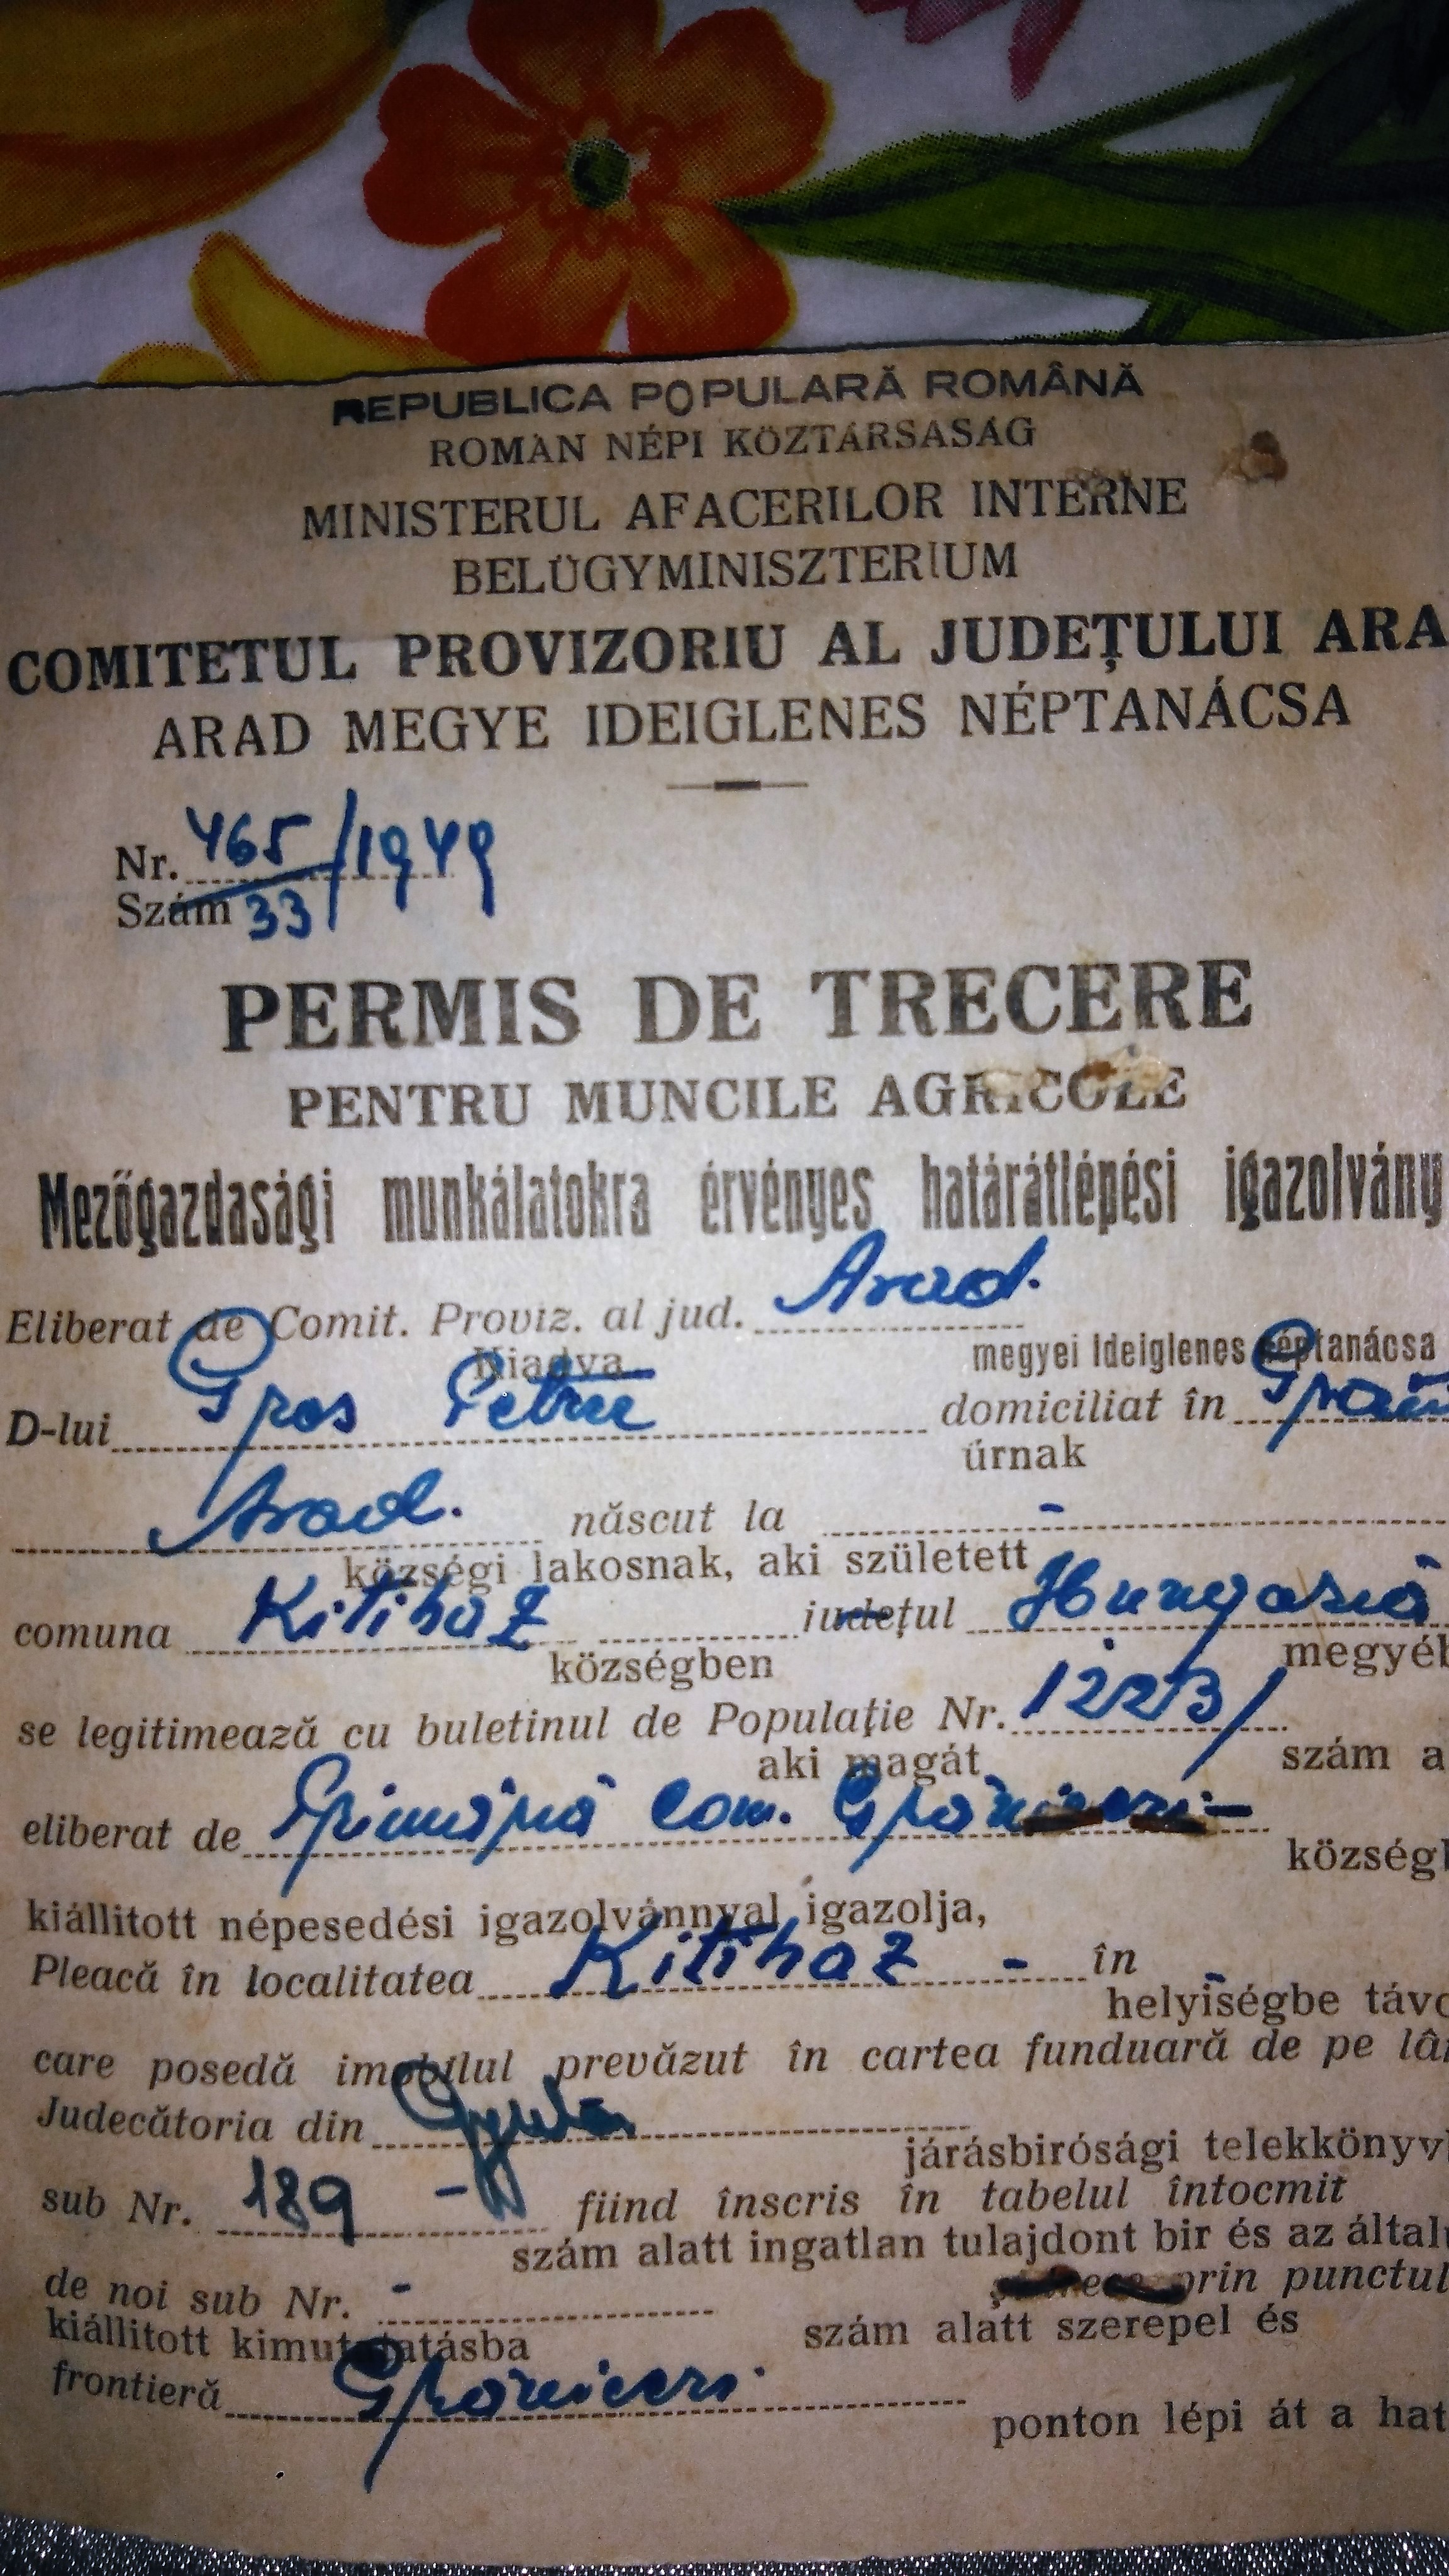 REPUBLICA POPULARĂ ROMÂNĂ
ROMAN NÉPI KÖZTÁRSASÁG
MINISTERUL AFACERILOR INTERNE
BELÜGYMINISZTERIUM
COMITETUL PROVIZORIU AL JUDEȚULUI ARA
ARAD MEGYE IDEIGLENES NÉPTANÁCSA
Nr. 465/1949
Szám 33
PERMIS DE TRECERE
PENTRU MUNCILE AGRICOLE
Mezőgazdasági munkálatokra érvényes határátlépési igazolvány
Eliberat de Comit. Proviz. al jud. Arad.
Kiadva megyei Ideiglenes néptanácsa
D-lui Gros Petru domiciliat în
úrnak
Arad. născut la -
községi lakosnak, aki született
comuna Kitihaz județul Hungaria
községben megyéb
se legitimează cu buletinul de Populație Nr. 1223/
aki magát szám a
eliberat de Primăria Com. Grăniceri-
község
kiállitott népesedési igazolvánnyal igazolja,
Pleacă în localitatea Kitihaz - în -
helyiségbe távo
care posedă imobilul prevăzut în cartea funduară de pe lân
Judecătoria din Gyula
járásbirósági telekkönyv
sub Nr. 189 - fiind înscris în tabelul întocmit
szám alatt ingatlan tulajdont bir és az által
de noi sub Nr. - prin punctul
kiállitott kimutatásba szám alatt szerepel és
frontieră Grăniceri.
ponton lépi át a hat